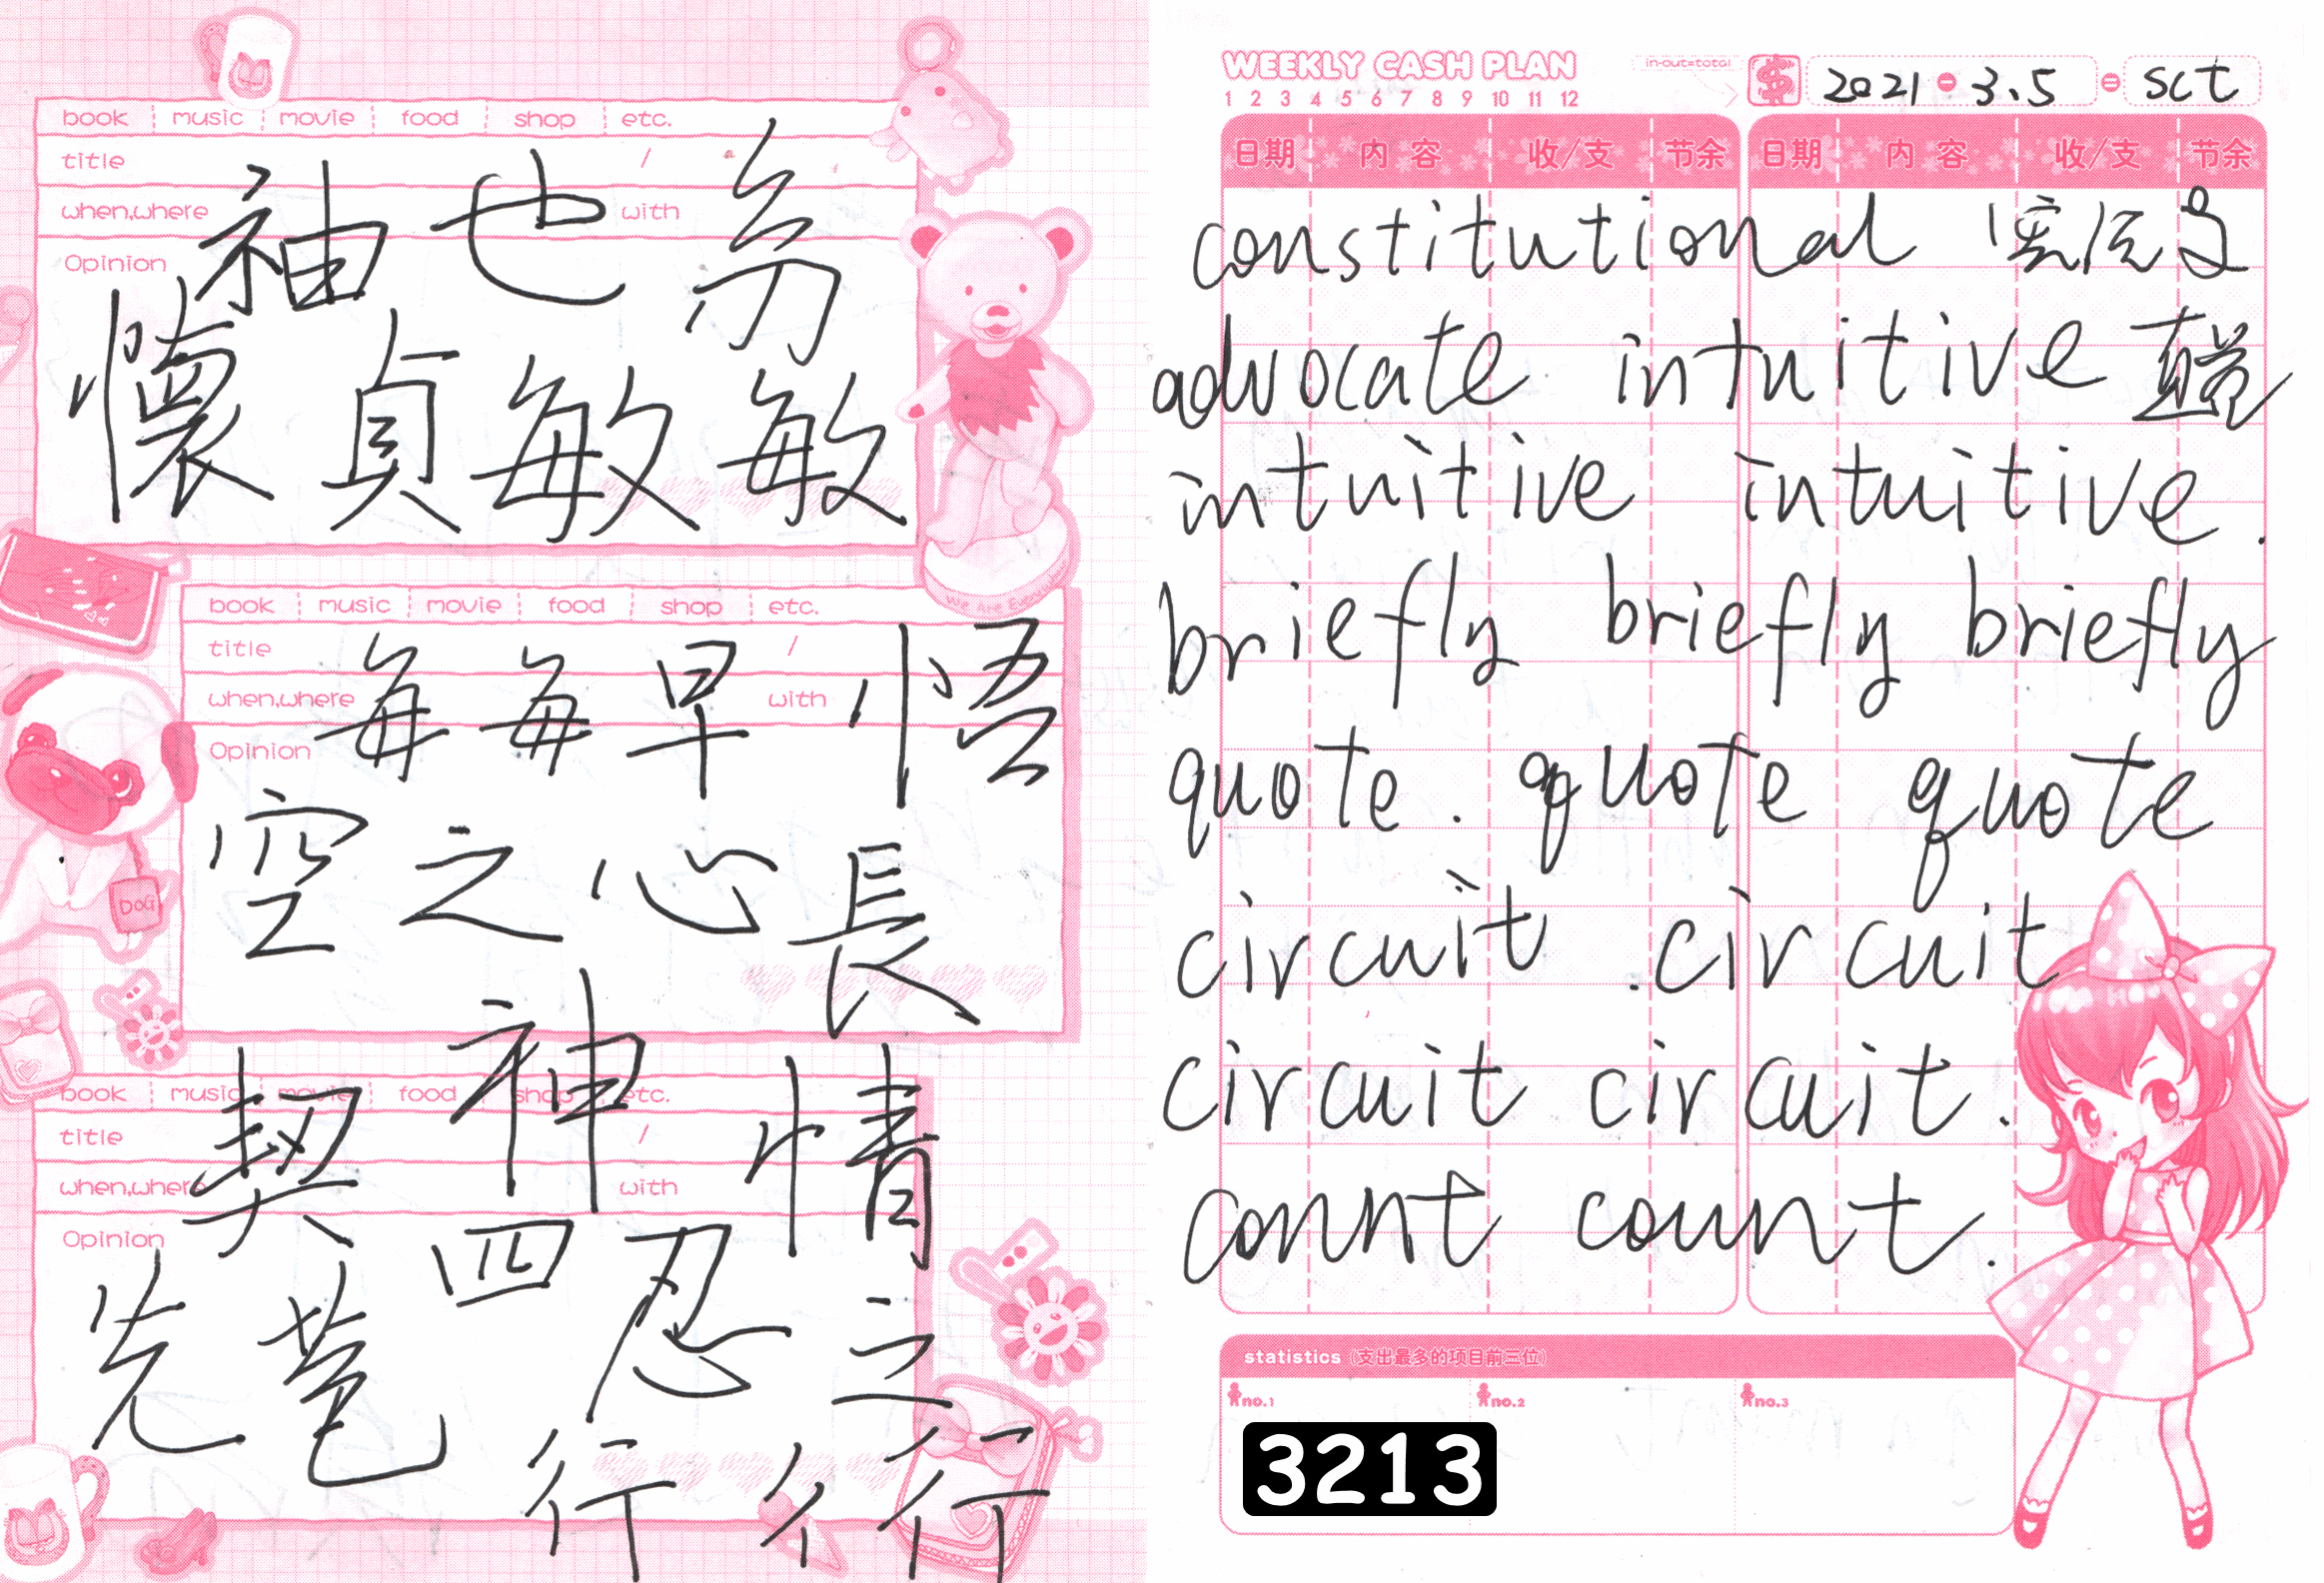 book music movie food shop etc.
title /
when,where with
Opinion
袖 也
懷 貞 敏 敏
We Are Every
book music movie food shop etc.
title /
when,where with
Opinion
每 每 早 悟
空 之 心 長
DOG
book music movie food shop etc.
title /
when,where with
Opinion
契 神 情
先 四 忍 之
行 行
WEEKLY CASH PLAN
1 2 3 4 5 6 7 8 9 10 11 12
in-out=total
$ 2021 - 3.5 = sct
日期 内 容 收/支 节余 日期 内 容 收/支 节余
constitutional
advocate intuitive 直觉
intuitive intuitive.
briefly briefly briefly
quote. quote quote
circuit .circuit
circuit circuit.
connt count.
statistics (支出最多的项目前三位)
no.1 no.2 no.3
3213